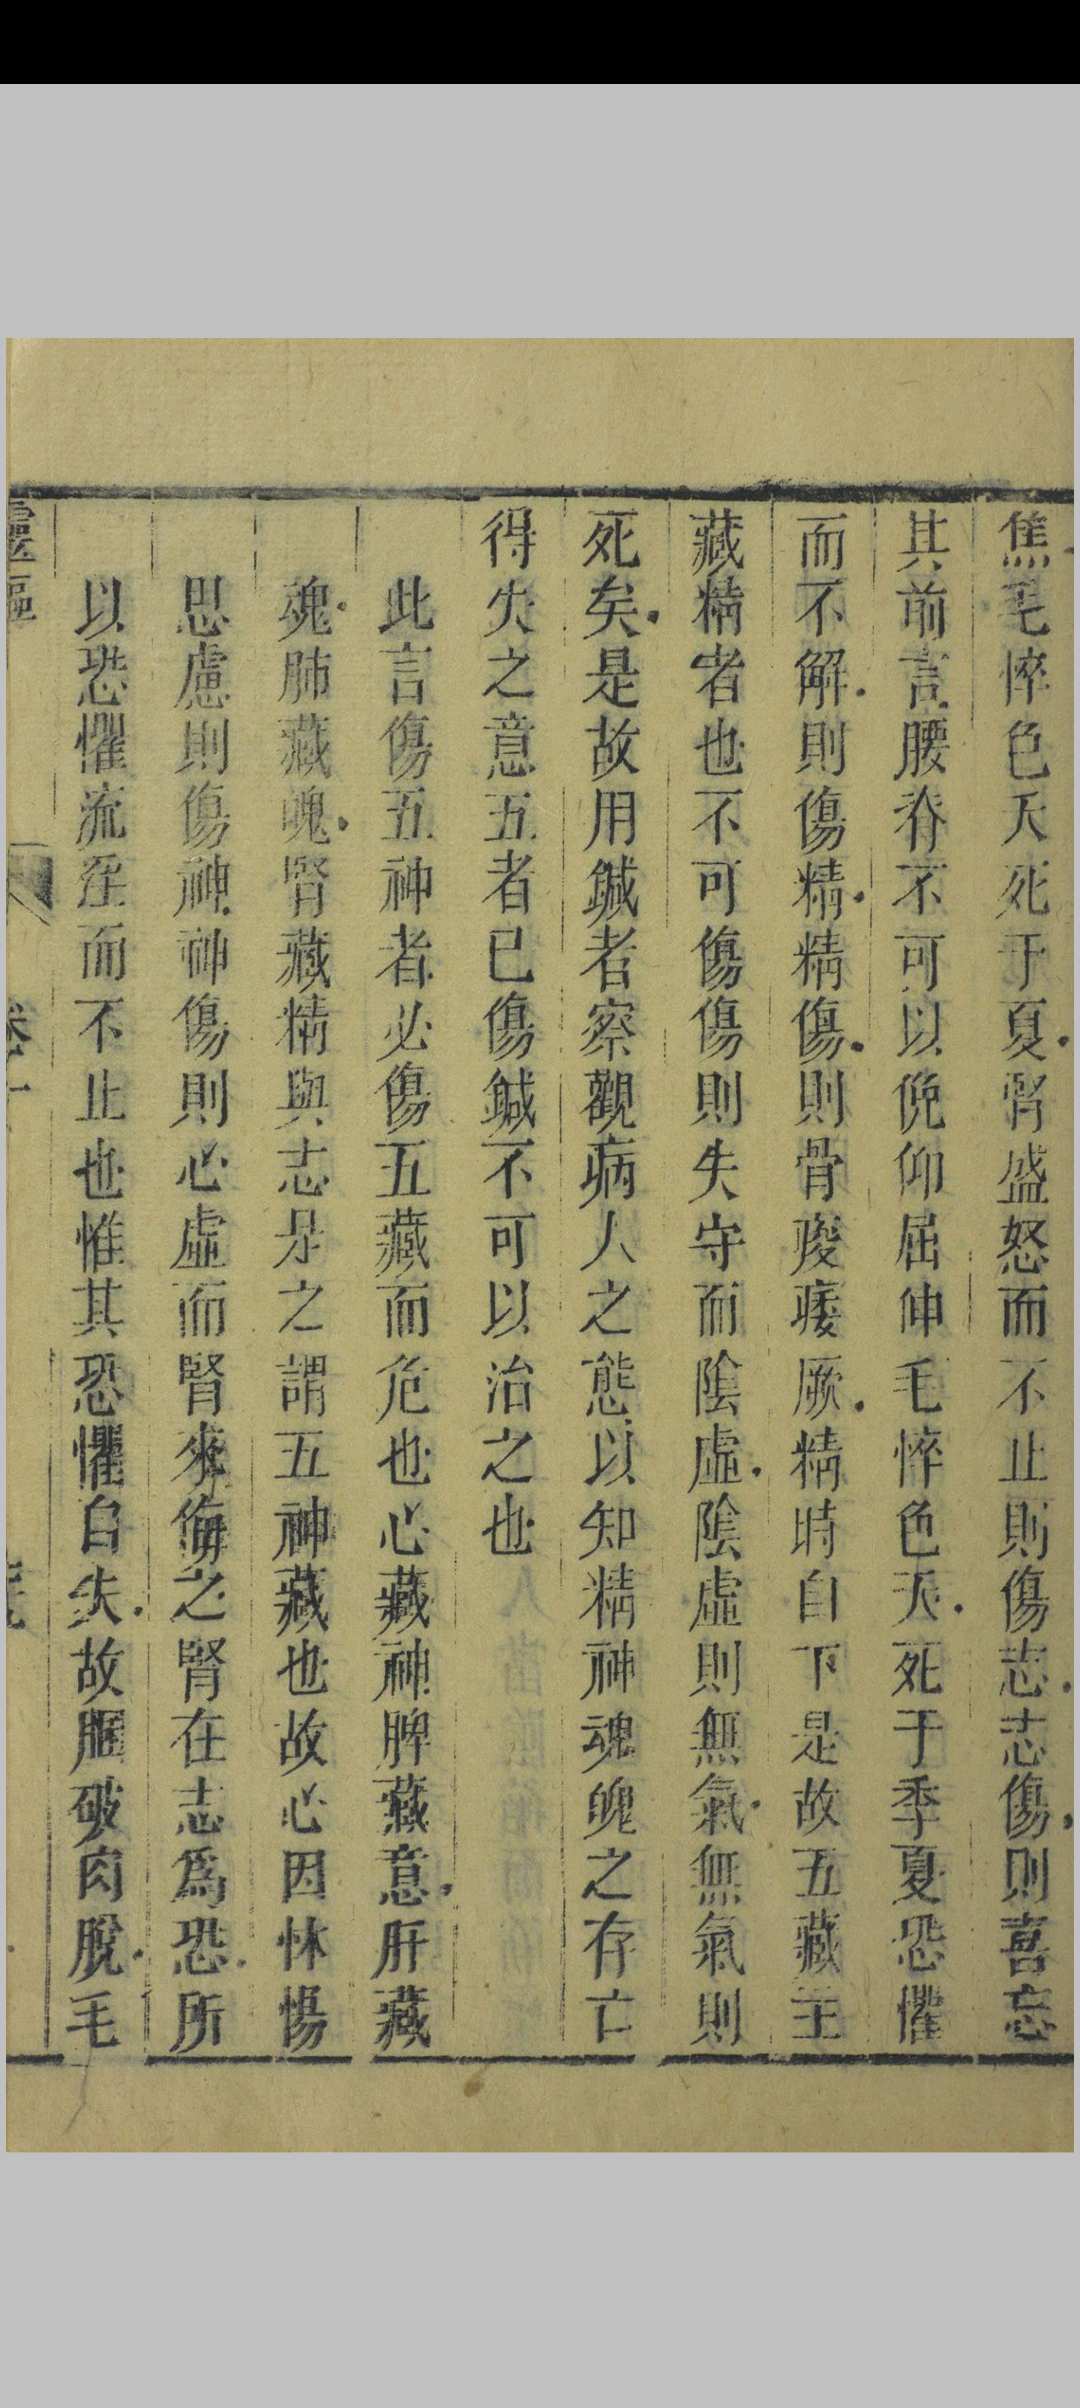 焦毛悴色夭死于夏腎盛怒而不止則傷志志傷則喜忘
其前言腰脊不可以俛仰屈伸毛悴色夭死于季夏恐懼
而不解則傷精精傷則骨痠痿厥精時自下是故五藏主
藏精者也不可傷傷則失守而陰虛陰虛則無氣無氣則
死矣是故用鍼者察觀病人之態以知精神魂魄之存亡
得失之意五者已傷鍼不可以治之也
此言傷五神者必傷五藏而危也心藏神脾藏意肝藏
魂肺藏魄腎藏精與志是之謂五神藏也故心因怵惕
思慮則傷神神傷則心虛而腎來侮之腎在志爲恐所
以恐懼流淫而不止也惟其恐懼自失故䐃破肉脫毛
靈樞 卷一